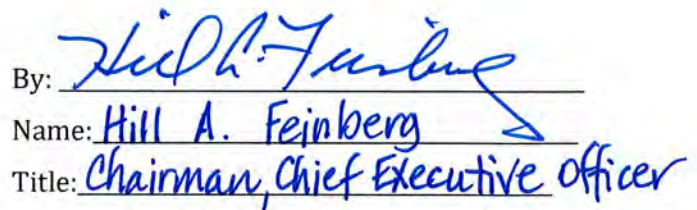 By: Hill A. Feinberg
Name: Hill A. Feinberg
Title: Chairman, Chief Executive Officer